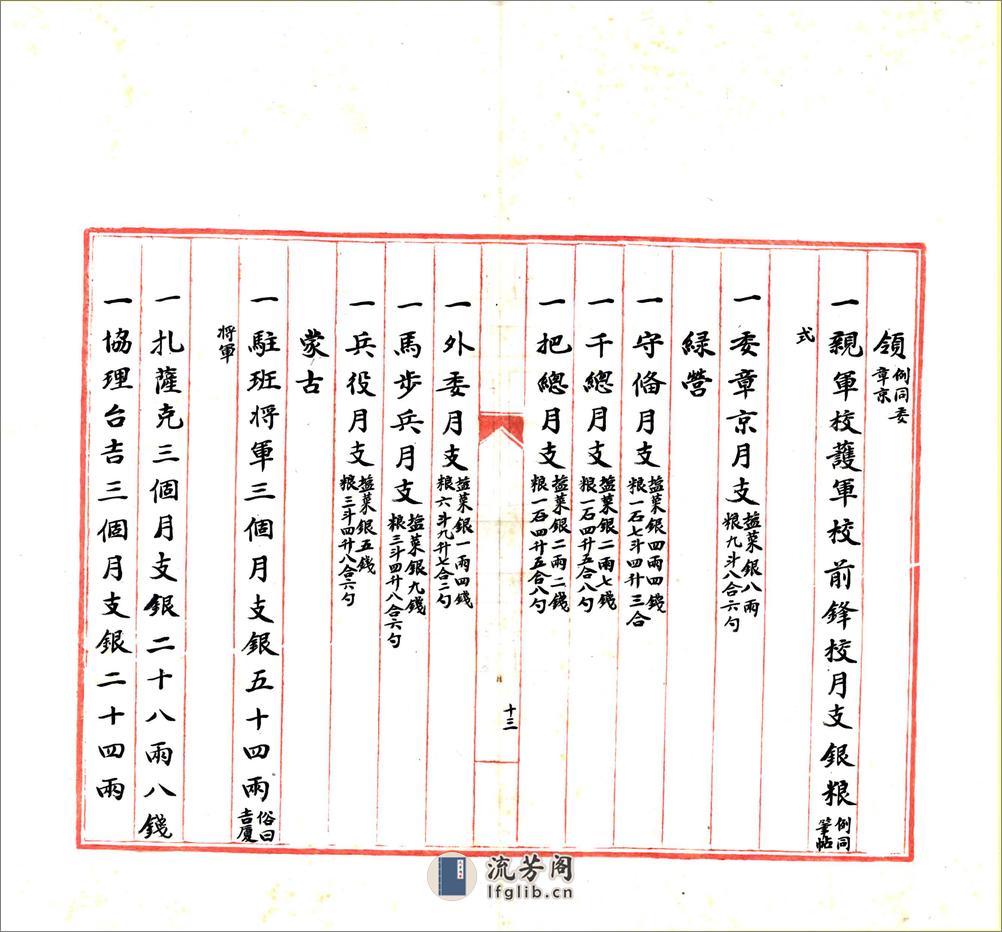 領例同委章京
一親軍校護軍校前鋒校月支銀粮例同筆帖
式
一委章京月支盐菜銀八兩粮九斗八合六勺
緑營
一守俻月支盐菜銀四兩四錢粮一石七斗四升三合
一千總月支盐菜銀二兩七錢粮一石四升五合八勺
一把總月支盐菜銀二兩二錢粮一石四升五合八勺
十三
一外委月支盐菜銀一兩四錢粮六斗九升七合二勺
一馬步兵月支盐菜銀九錢粮三斗四升八合六勺
一兵役月支盐菜銀五錢粮三斗四升八合六勺
蒙古
一駐班将軍三個月支銀五十四兩俗曰吉厦
将軍
一扎薩克三個月支銀二十八兩八錢
一協理台吉三個月支銀二十四兩
流芳阁
lfglib.cn